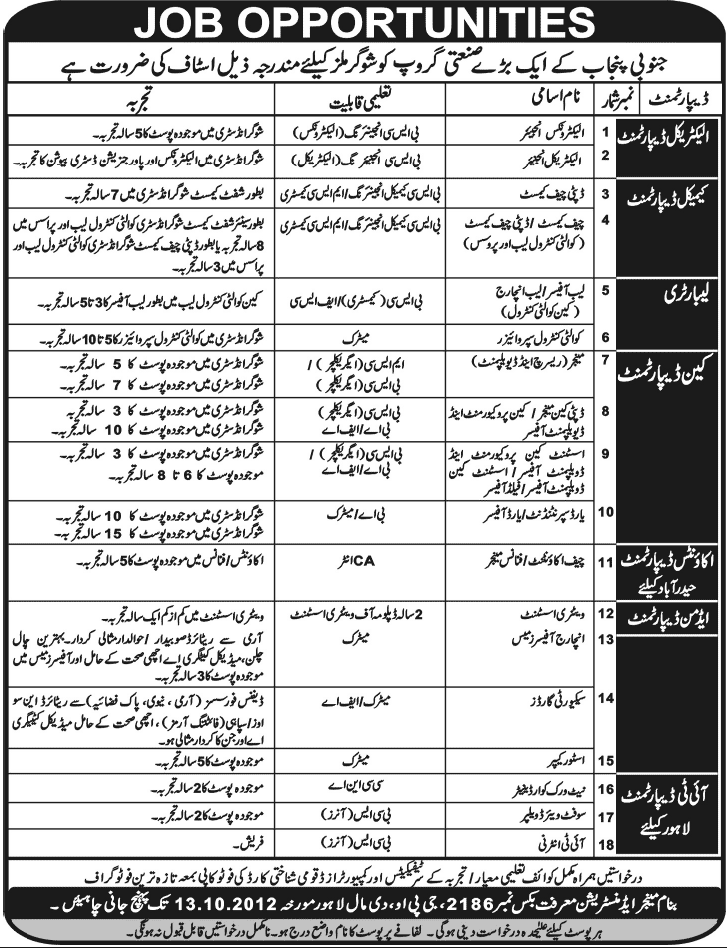 JOB OPPORTUNITIES
جنوبی پنجاب کے ایک بڑے صنعتی گروپ کو شوگر ملز کیلئے مندرجہ ذیل اسٹاف کی ضرورت ہے
ڈیپارٹمنٹ نمبر شمار نام اسامی تعلیمی قابلیت تجربہ
الیکٹریکل ڈیپارٹمنٹ 1 الیکٹرونکس انجینئر بی ایس سی انجینئرنگ (الیکٹرونکس) شوگر انڈسٹری میں موجودہ پوسٹ کا 5 سالہ تجربہ۔
2 الیکٹریکل انجینئر بی ایس سی انجینئرنگ (الیکٹریکل) شوگر انڈسٹری میں الیکٹرونکس اور پاور جنریشن ڈسٹری بیوشن کا تجربہ۔
کیمیکل ڈیپارٹمنٹ 3 ڈپٹی چیف کیمسٹ بی ایس سی کیمیکل انجینئرنگ/ایم ایس سی کیمسٹری بطور شفٹ کیمسٹ شوگر انڈسٹری میں 7 سالہ تجربہ۔
4 چیف کیمسٹ/ڈپٹی چیف کیمسٹ بی ایس سی کیمیکل انجینئرنگ/ایم ایس سی کیمسٹری بطور سینئر شفٹ کیمسٹ شوگر انڈسٹری کوالٹی کنٹرول لیب اور پراسس میں
(کوالٹی کنٹرول لیب اور پروسس) 8 سالہ تجربہ یا بطور ڈپٹی چیف کیمسٹ شوگر انڈسٹری کوالٹی کنٹرول لیب اور
پراسس میں 3 سالہ تجربہ۔
لیبارٹری 5 لیب آفیسر/لیب انچارج بی ایس سی (کیمسٹری)/ایف ایس سی کین کوالٹی کنٹرول لیب میں بطور لیب آفیسر کا 3 تا 5 سالہ تجربہ۔
(کین کوالٹی کنٹرول)
6 کوالٹی کنٹرول سپروائیزر میٹرک شوگر انڈسٹری میں کوالٹی کنٹرول سپروائیزر کا 5 تا 10 سالہ تجربہ۔
کین ڈیپارٹمنٹ 7 مینیجر (ریسرچ اینڈ ڈویلپمنٹ) ایم ایس سی (ایگریکلچر)/ شوگر انڈسٹری میں موجودہ پوسٹ کا 5 سالہ تجربہ۔
بی ایس سی (ایگریکلچر) شوگر انڈسٹری میں موجودہ پوسٹ کا 7 سالہ تجربہ۔
8 ڈپٹی کین مینیجر/کین پروکیورمنٹ اینڈ بی ایس سی (ایگریکلچر) شوگر انڈسٹری میں موجودہ پوسٹ کا 3 سالہ تجربہ
ڈویلپمنٹ آفیسر بی اے/ایف اے شوگر انڈسٹری میں موجودہ پوسٹ کا 10 سالہ تجربہ۔
9 اسسٹنٹ کین پروکیورمنٹ اینڈ بی ایس سی (ایگریکلچر)/ شوگر انڈسٹری میں موجودہ پوسٹ کا 3 سالہ تجربہ۔
ڈویلپمنٹ آفیسر/اسسٹنٹ کین بی اے/ایف اے موجودہ پوسٹ کا 6 تا 8 سالہ تجربہ۔
ڈویلپمنٹ آفیسر/فیلڈ آفیسر
10 یارڈ سپرنٹنڈنٹ/یارڈ آفیسر بی اے/میٹرک شوگر انڈسٹری میں موجودہ پوسٹ کا 10 سالہ تجربہ۔
شوگر انڈسٹری میں موجودہ پوسٹ کا 15 سالہ تجربہ۔
اکاؤنٹس ڈیپارٹمنٹ 11 چیف اکاؤنٹنٹ/فنانس مینیجر CA انٹر اکاؤنٹس/فنانس میں موجودہ پوسٹ کا 5 سالہ تجربہ۔
حیدرآباد کیلئے
ایڈمن ڈیپارٹمنٹ 12 ویٹری اسسٹنٹ 2 سالہ ڈپلومہ آف ویٹری اسسٹنٹ ویٹری اسسٹنٹ میں کم از کم ایک سالہ تجربہ۔
13 انچارج آفیسرز میس میٹرک آرمی سے ریٹائرڈ صوبیدار/حوالدار مثالی کردار۔ بہترین چال
چلن، میڈیکل کیٹیگری اے اچھی صحت کے حامل اور آفیسرز میس میں
موجودہ پوسٹ کا 3 سالہ تجربہ۔
14 سیکیورٹی گارڈز میٹرک/ایف اے ڈیفنس فورسسز (آرمی، نیوی، پاک فضائیہ) سے ریٹائرڈ این سو
اوز/سپاہی (فائٹنگ آرمز)، اچھی صحت کے حامل میڈیکل کیٹیگری
اے اور جن کا کردار مثالی ہو۔
15 اسٹور کیپر میٹرک موجودہ پوسٹ کا 5 سالہ تجربہ۔
آئی ٹی ڈیپارٹمنٹ 16 نیٹ ورک کوارڈینیٹر سی سی این اے موجودہ پوسٹ کا 2 سالہ تجربہ۔
لاہور کیلئے 17 سوفٹ ویئر ڈویلپر بی سی ایس (آنرز) موجودہ پوسٹ کا 2 سالہ تجربہ۔
18 آئی ٹی انٹرنی بی سی ایس (آنرز) فریش۔
درخواستیں ہمراہ مکمل کوائف تعلیمی معیار/تجربہ کے سرٹیفکیٹس اور کمپیوٹرائزڈ قومی شناختی کارڈ کی فوٹو کاپی بمعہ تازہ ترین فوٹوگراف
بنام مینیجر ایڈمنسٹریشن معرفت بکس نمبر 2186، جی پی او، دی مال لاہور مورخہ 13.10.2012 تک پہنچ جانی چاہئیں۔
ہر پوسٹ کیلئے علیحدہ درخواست دینی ہوگی۔ لفافے پر پوسٹ کا نام واضح درج ہو۔ نامکمل درخواستیں قابل قبول نہ ہونگی۔